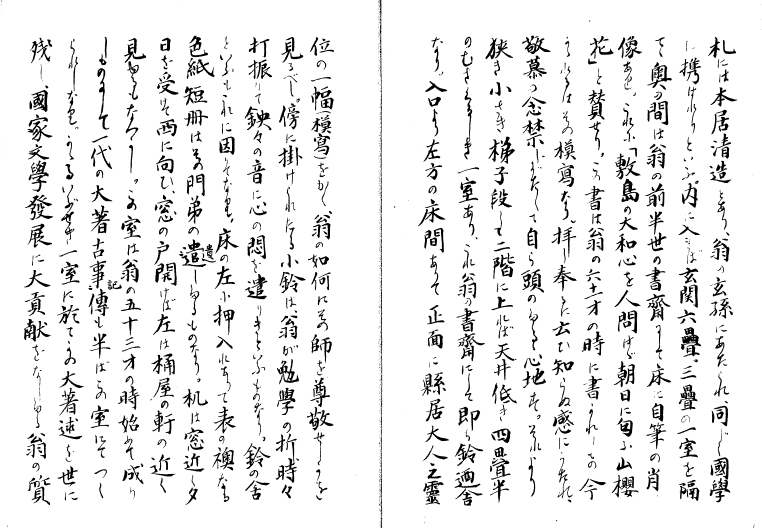 札には本居清造とあり、翁の玄孫にあたられ同じく國學
に携はれりといふ、内に入れば玄関六疊、三疊の一室を隔
てゝ奥の間は翁の前半世の書齋にして床に自筆の肖
像あり、これに「敷島の大和心を人問はゞ朝日に匂ふ山櫻
花」と賛せり、この書は翁の六十才の時に書かれしもの今
あるはその模寫なり。拝し奉るに云ひ知らぬ感にうたれ、
敬慕の念禁じがたくして自ら頭の下る心地す。それより
狭き小さき梯子段して二階に上れば天井低き四畳半
のむさくるしき一室あり、これ翁の書齋にして即ち鈴廼舎
なり。入口より左方の床間あつて正面に縣居大人之靈
位の一幅(模寫)をかく翁の如何にその師を尊敬せしかを
見るべし。傍に掛けられたる小鈴は翁が勉學の折時々
打振りて鈌々の音に心の悶を遣りきといふものなり。鈴の舎
といふもこれに因るなり。床の左に押入れあつて表の襖なる
色紙短册はその門弟の遺しゝものなり。机は窓近く夕
日を受けて西に向ひ、窓の戸開けば左は桶屋の軒の近く
見ゆるもなつかし。この室は翁の五十三才の時始めて成り
しものにして一代の大著古事記傳も半ばこの室にてつく
られしなり。かゝるいぶせき一室に於てこの大著述を世に
残し國家文學發展に大貢献をなしゝ翁の質